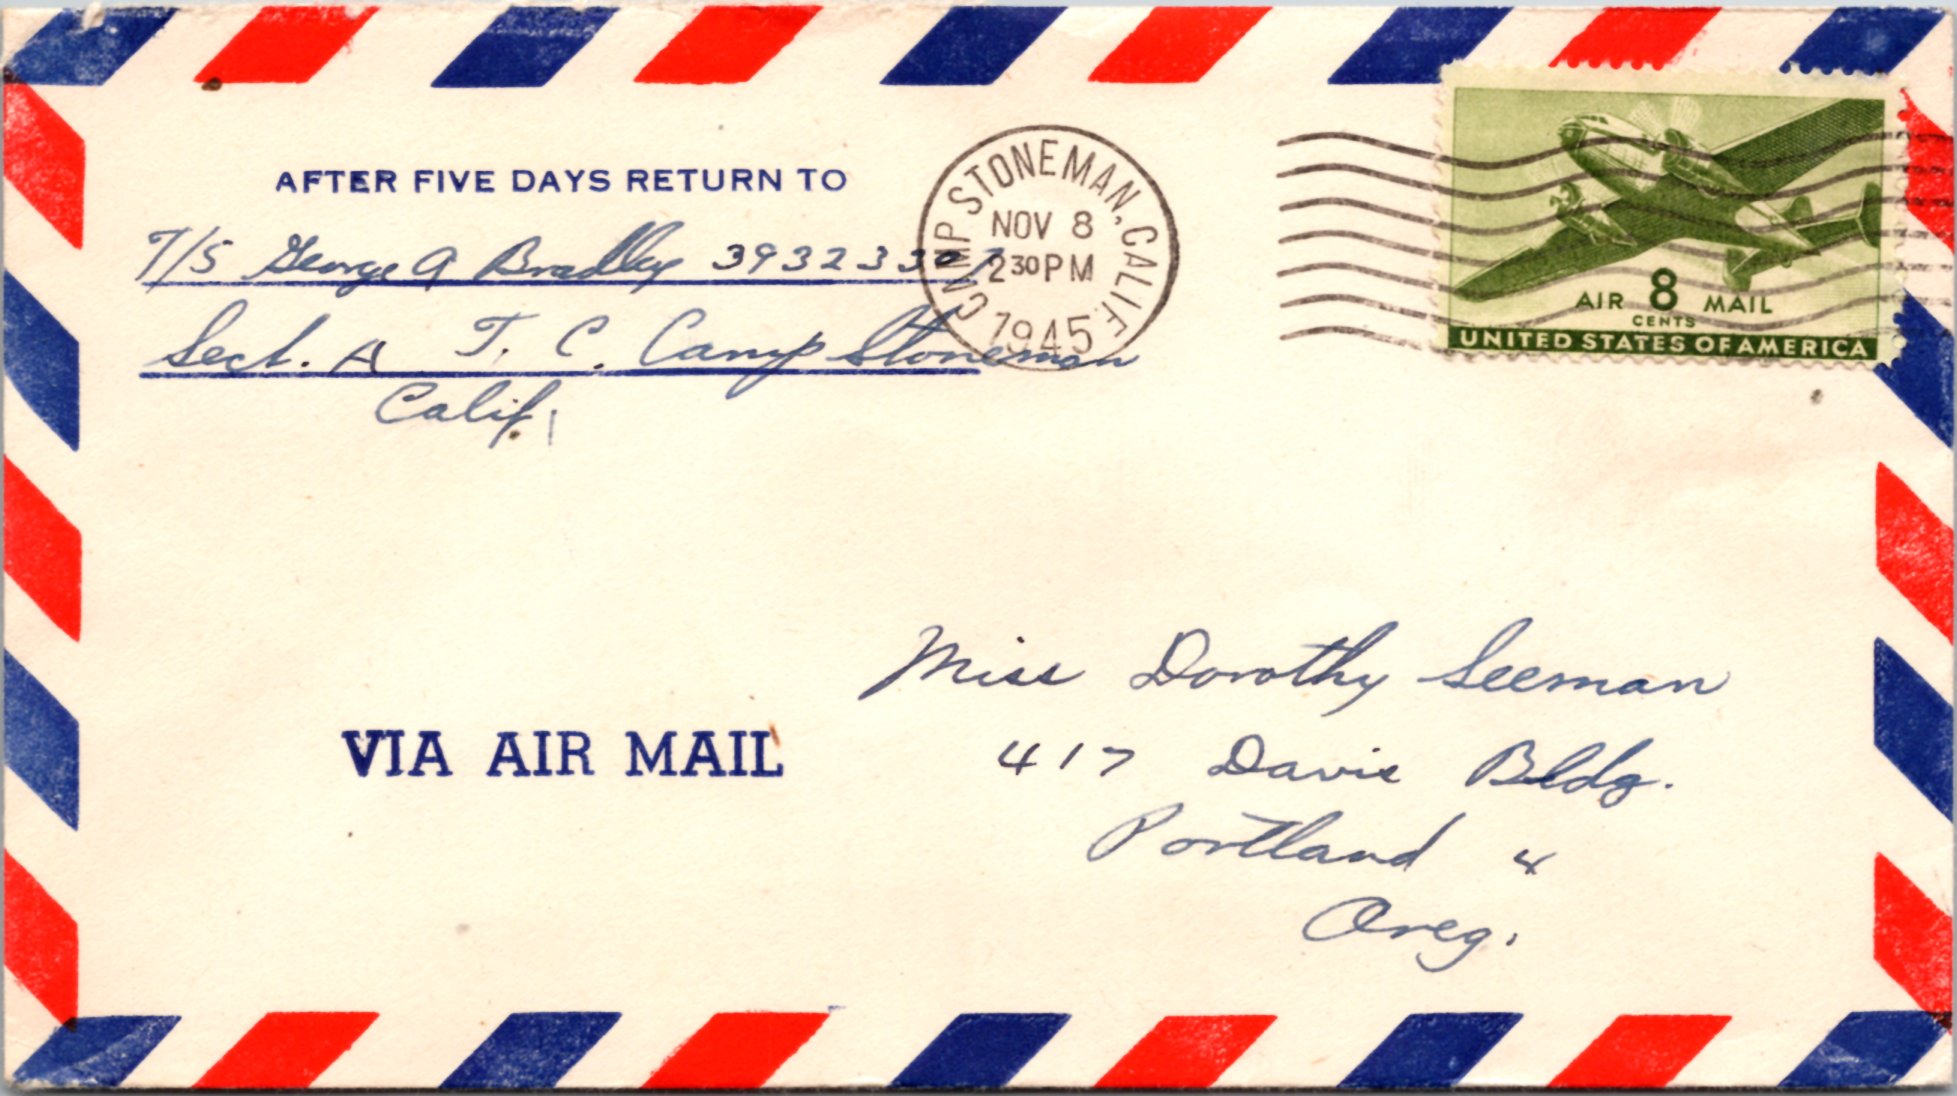 AFTER FIVE DAYS RETURN TO
T/5 George A Bradley
Sect. A T. C. Camp Stoneman
Calif.
CAMP STONEMAN, CALIF.
NOV 8
2 30 PM
1945
AIR 8 MAIL
CENTS
UNITED STATES OF AMERICA
VIA AIR MAIL
Miss Dorothy Seeman
417 Davis Bldg.
Portland 4
Oreg.